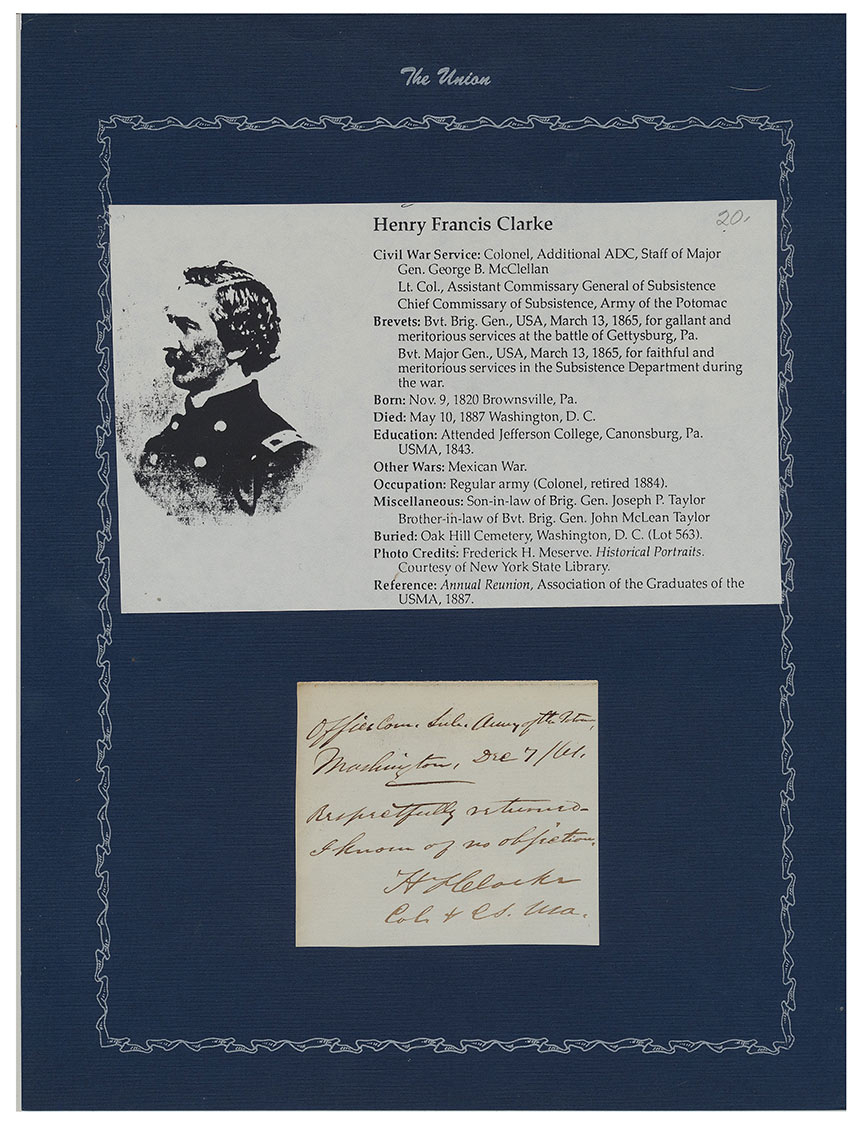 The Union
20.
Henry Francis Clarke
Civil War Service: Colonel, Additional ADC, Staff of Major
Gen. George B. McClellan
Lt. Col., Assistant Commissary General of Subsistence
Chief Commissary of Subsistence, Army of the Potomac
Brevets: Bvt. Brig. Gen., USA, March 13, 1865, for gallant and
meritorious services at the battle of Gettysburg, Pa.
Bvt. Major Gen., USA, March 13, 1865, for faithful and
meritorious services in the Subsistence Department during
the war.
Born: Nov. 9, 1820 Brownsville, Pa.
Died: May 10, 1887 Washington, D. C.
Education: Attended Jefferson College, Canonsburg, Pa.
USMA, 1843.
Other Wars: Mexican War.
Occupation: Regular army (Colonel, retired 1884).
Miscellaneous: Son-in-law of Brig. Gen. Joseph P. Taylor
Brother-in-law of Bvt. Brig. Gen. John McLean Taylor
Buried: Oak Hill Cemetery, Washington, D. C. (Lot 563).
Photo Credits: Frederick H. Meserve. Historical Portraits.
Courtesy of New York State Library.
Reference: Annual Reunion, Association of the Graduates of the
USMA, 1887.
Office Com. Sub. Army of the
Washington, Dec 7/61.
Respectfully returned-
I know of no objection.
H F Clarke
Col. & CS.